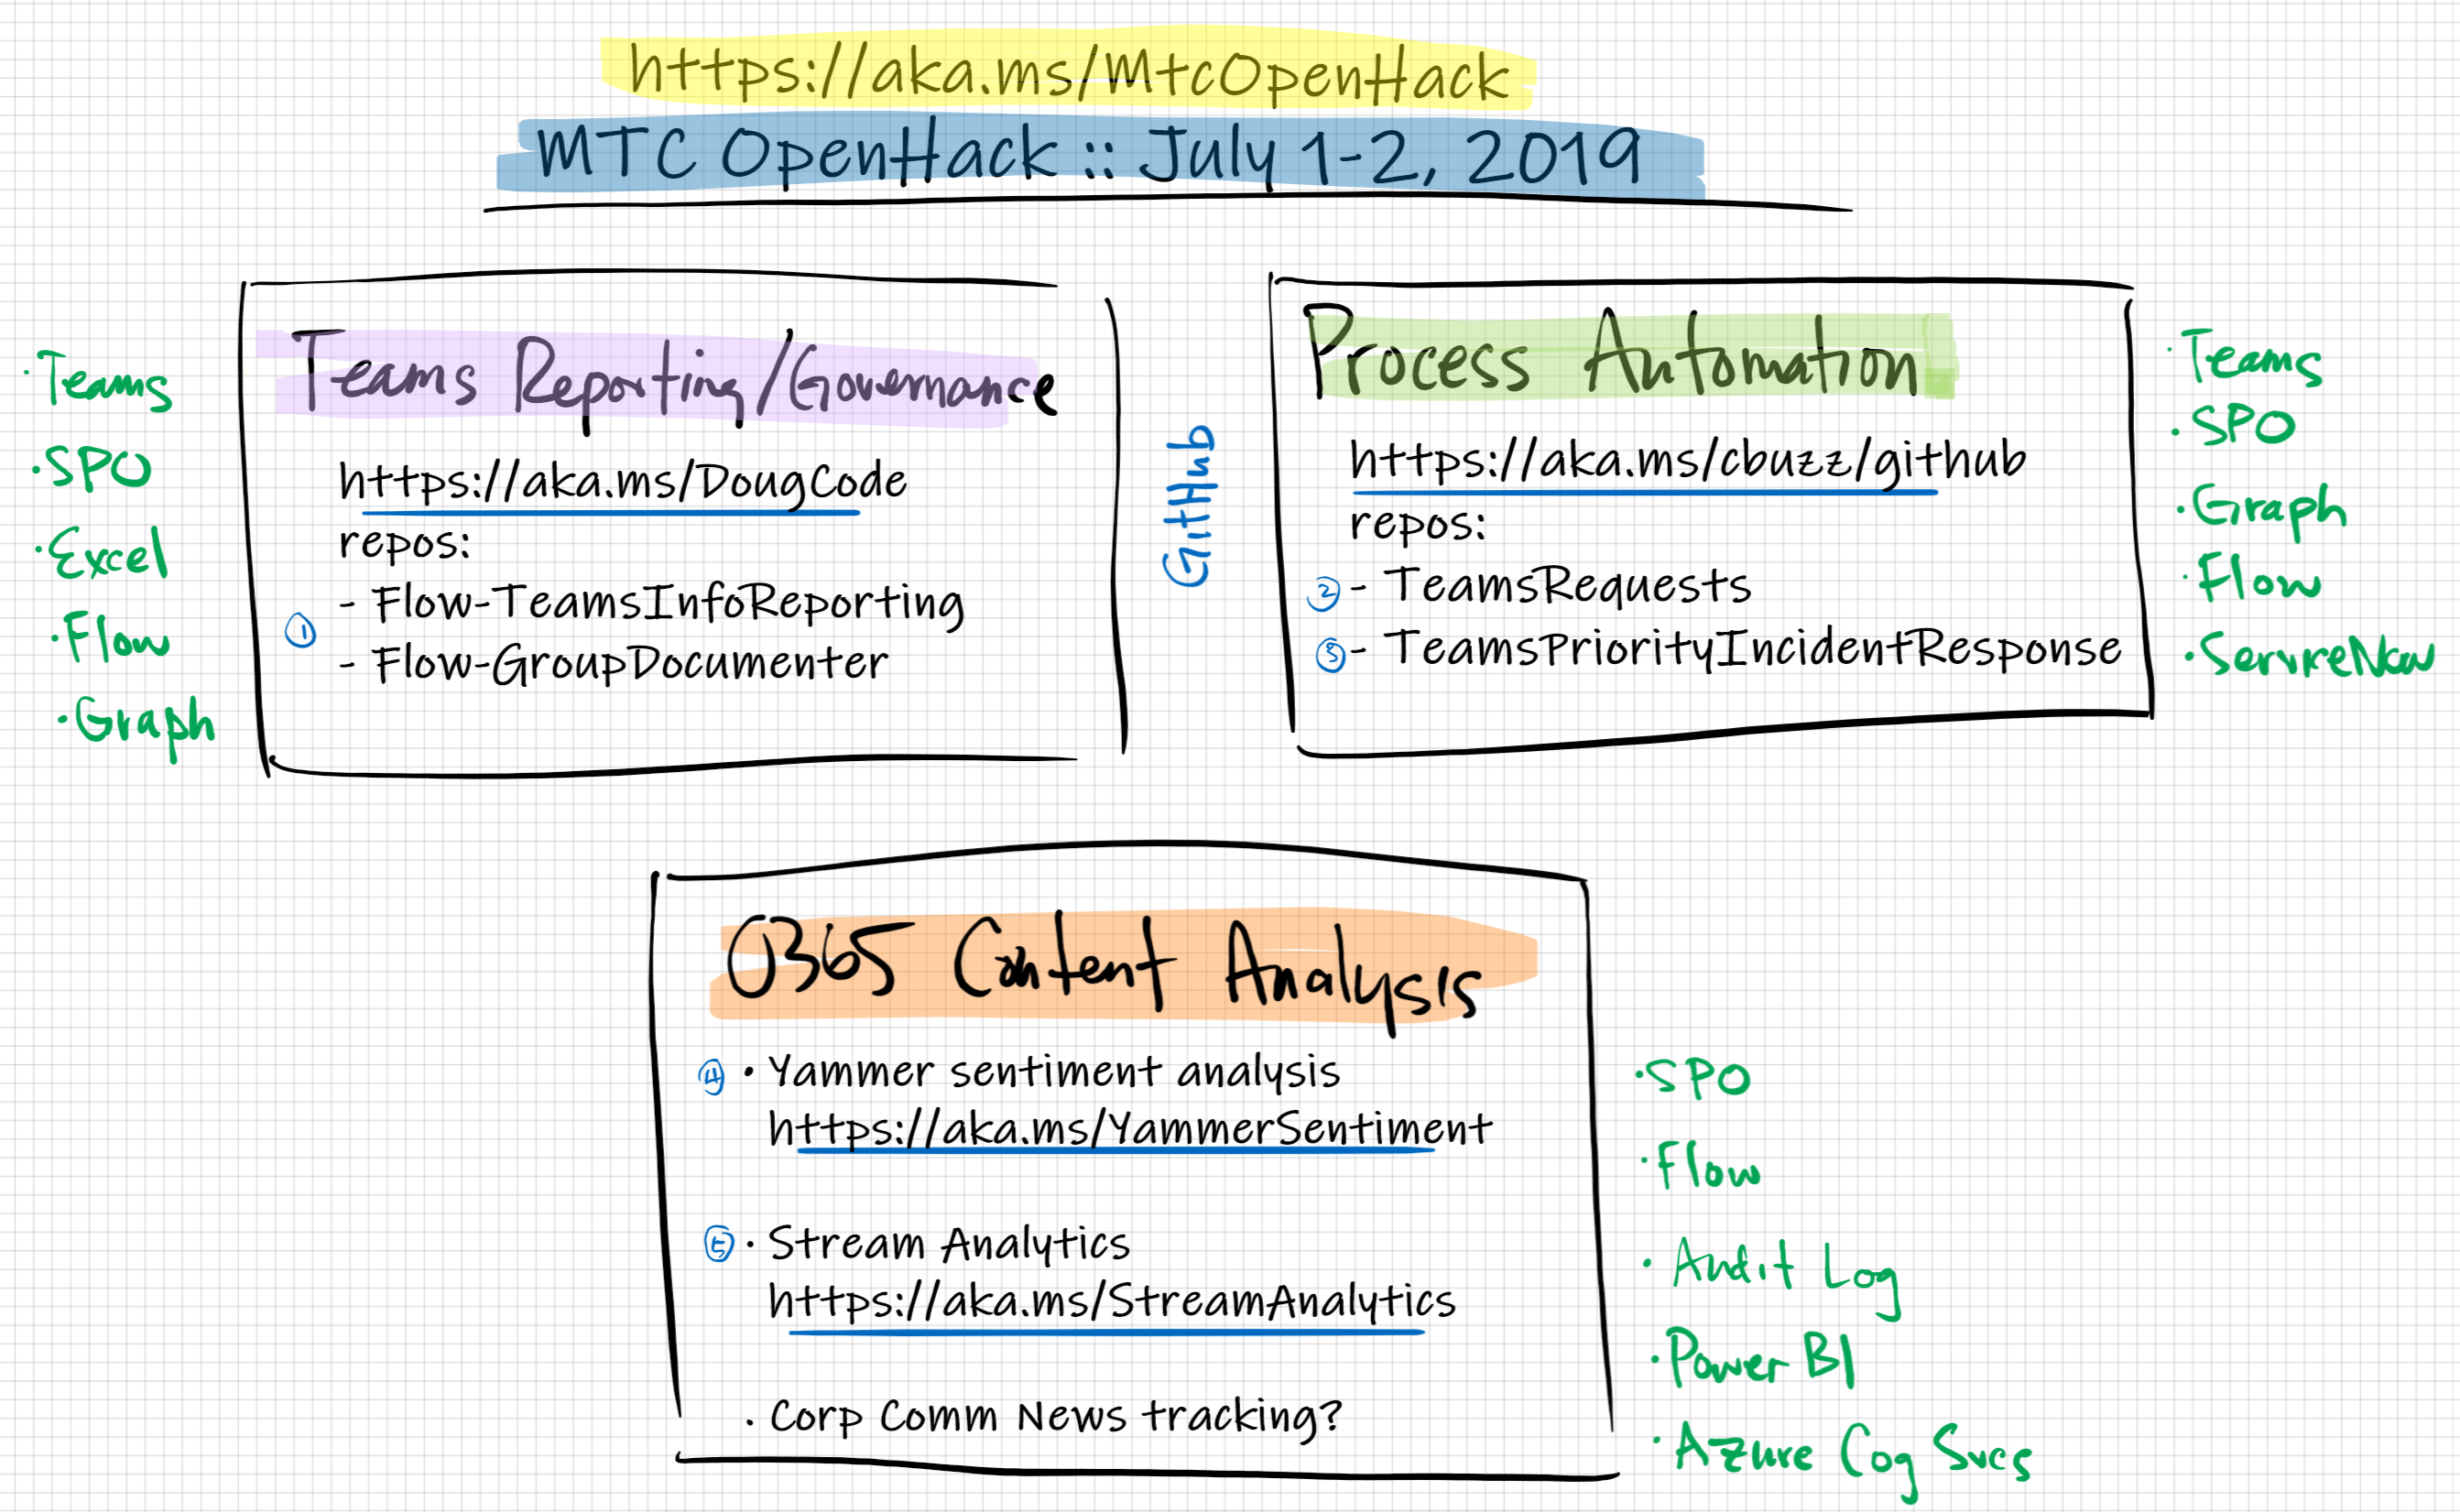 https://aka.ms/MtcOpenHack
MTC OpenHack :: July 1-2, 2019
· Teams
· SPO
· Excel
· Flow
· Graph
Teams Reporting/Governance
https://aka.ms/DougCode
repos:
① - Flow-TeamsInfoReporting
- Flow-GroupDocumenter
GitHub
Process Automation
https://aka.ms/cbuzz/github
repos:
② - TeamsRequests
③ - TeamsPriorityIncidentResponse
· Teams
· SPO
· Graph
· Flow
· ServiceNow
O365 Content Analysis
④ · Yammer sentiment analysis
https://aka.ms/YammerSentiment
⑤ · Stream Analytics
https://aka.ms/StreamAnalytics
· Corp Comm News tracking?
· SPO
· Flow
· Audit Log
· Power BI
· Azure Cog Svcs